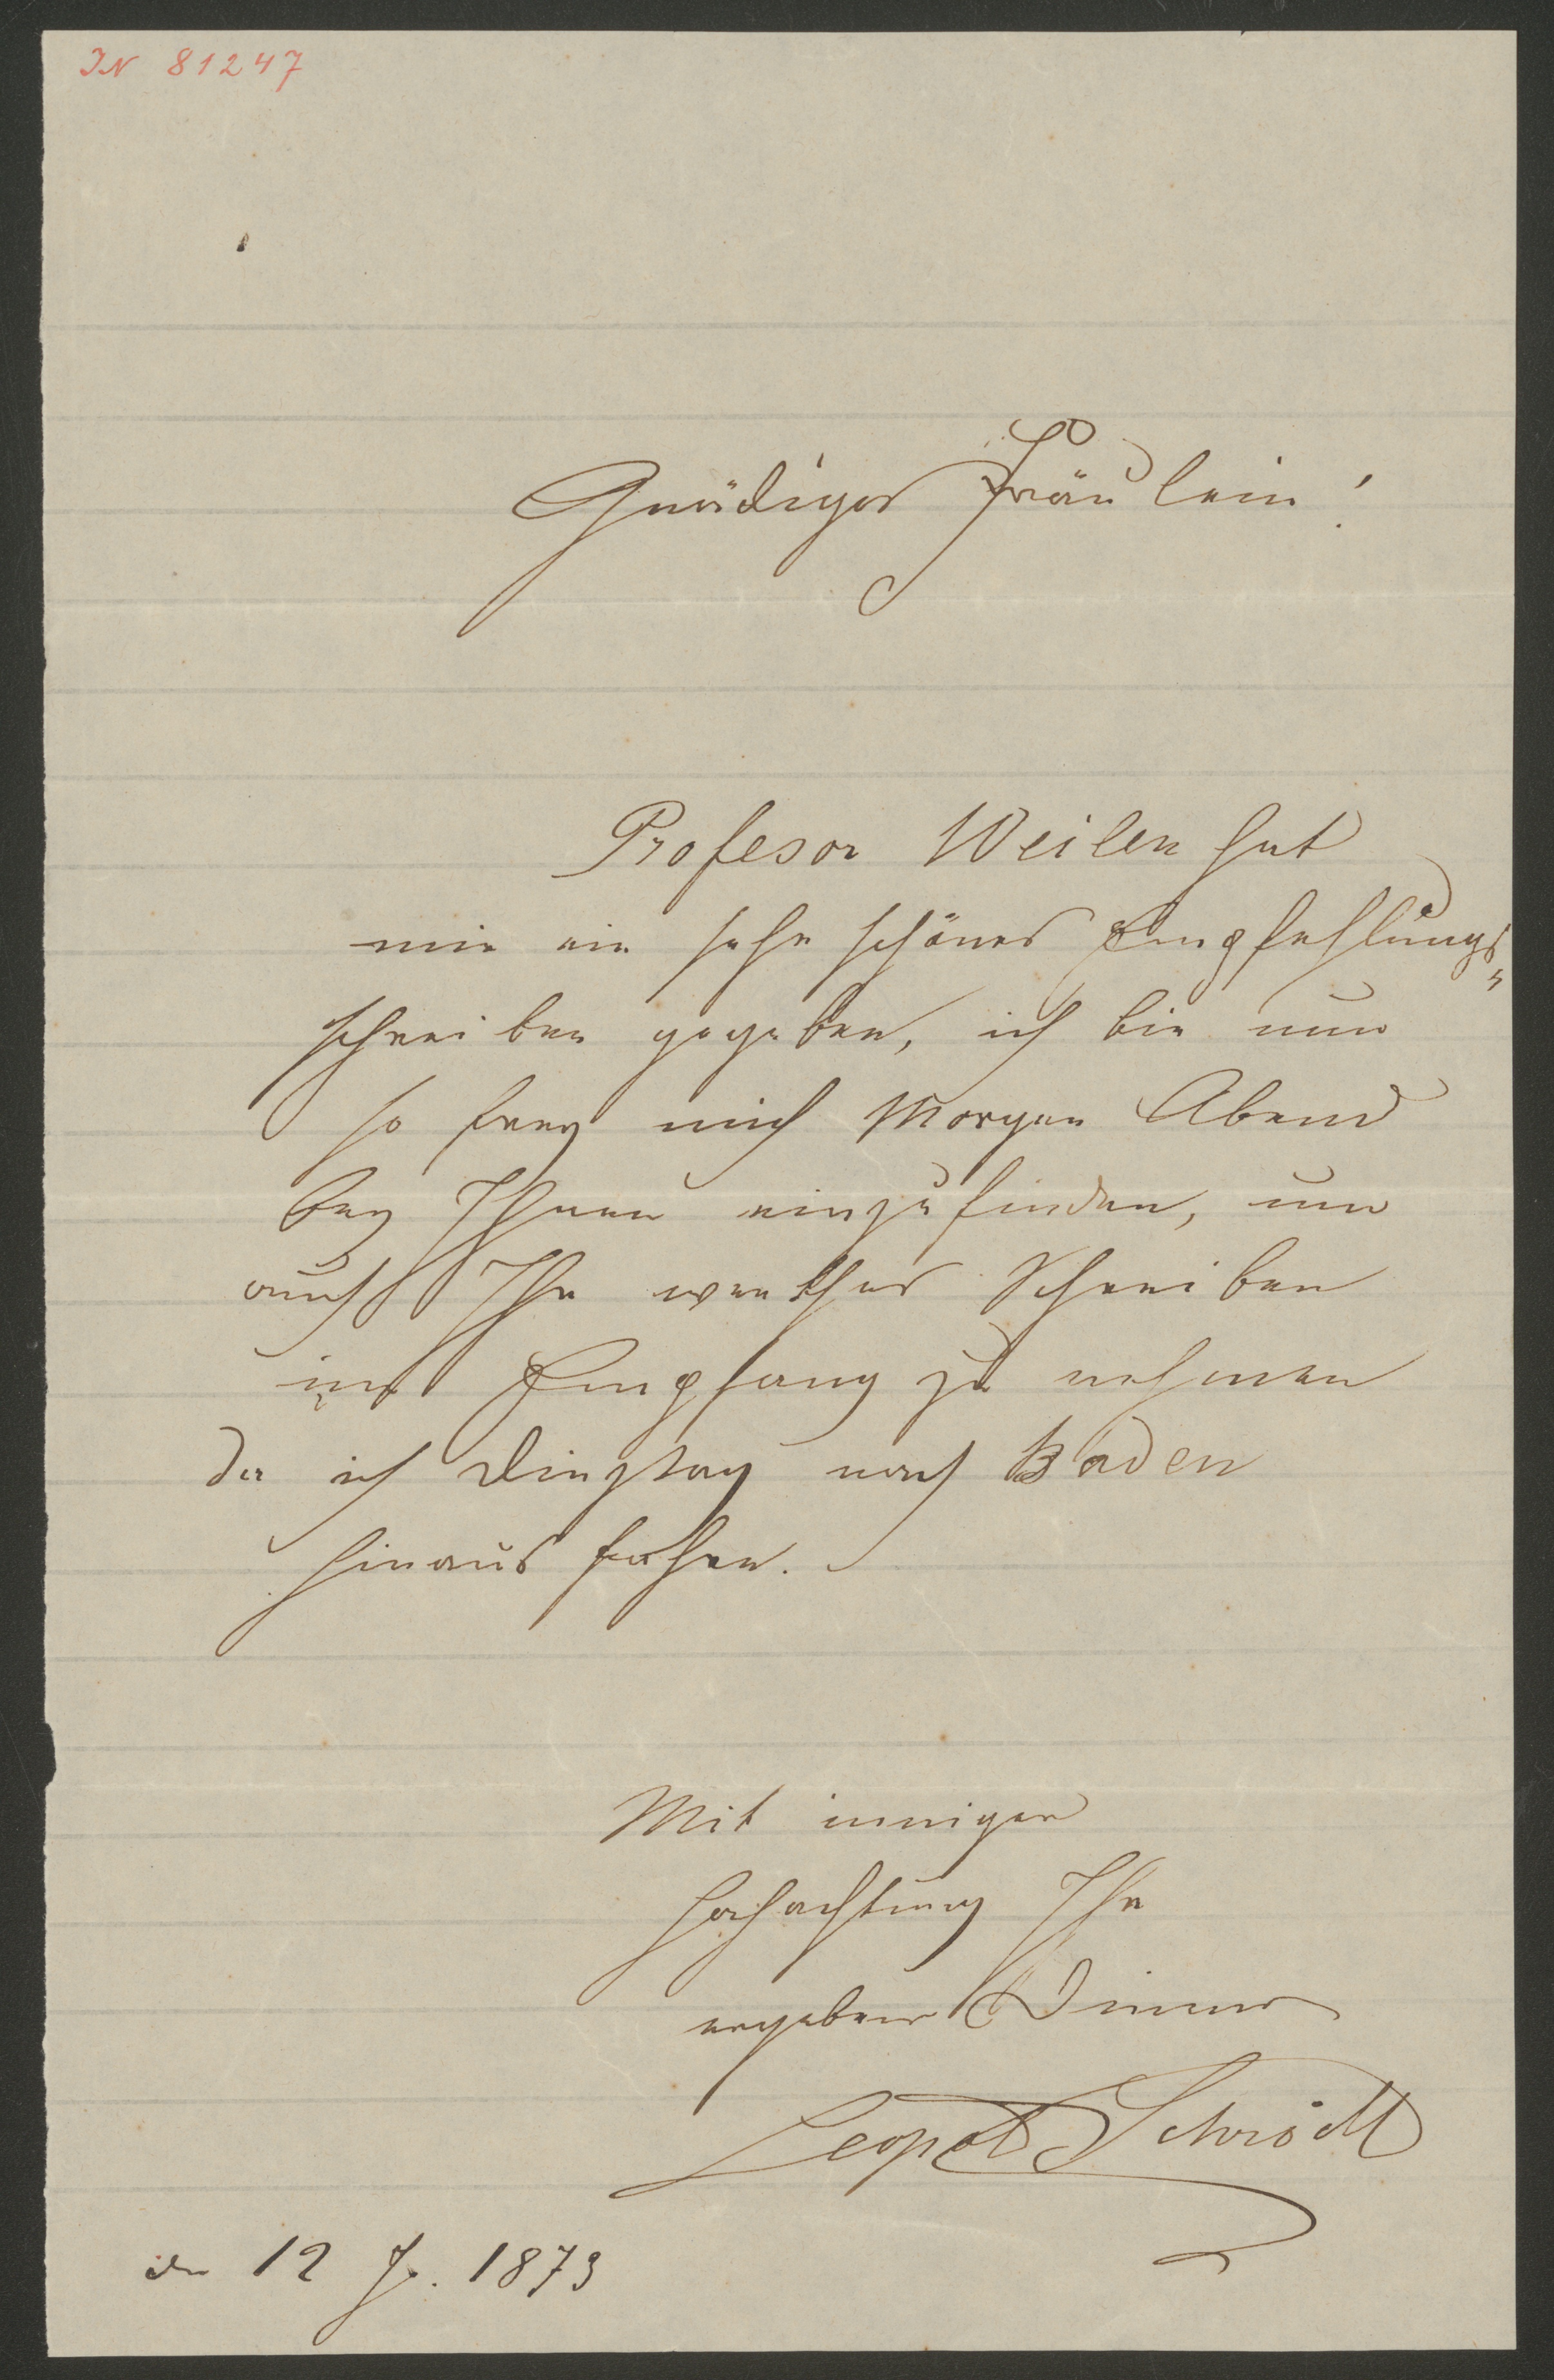 IN 81247
Gnädiges Fräulein!
Profesor Weilen hat
mir ein sehr schönes Empfehlungs„
schreiben gegeben, ich bin nun
so frey mich Morgen Abend
bey Ihnen einzufinden, um
auch Ihr werthes Schreiben
in Empfang zu nehmen
da ich Dinstag nach Baden
hinaus fahre.
Mit inniger
Hochachtung Ihr
ergebener Diener
Leopold
den 12 J. 1873